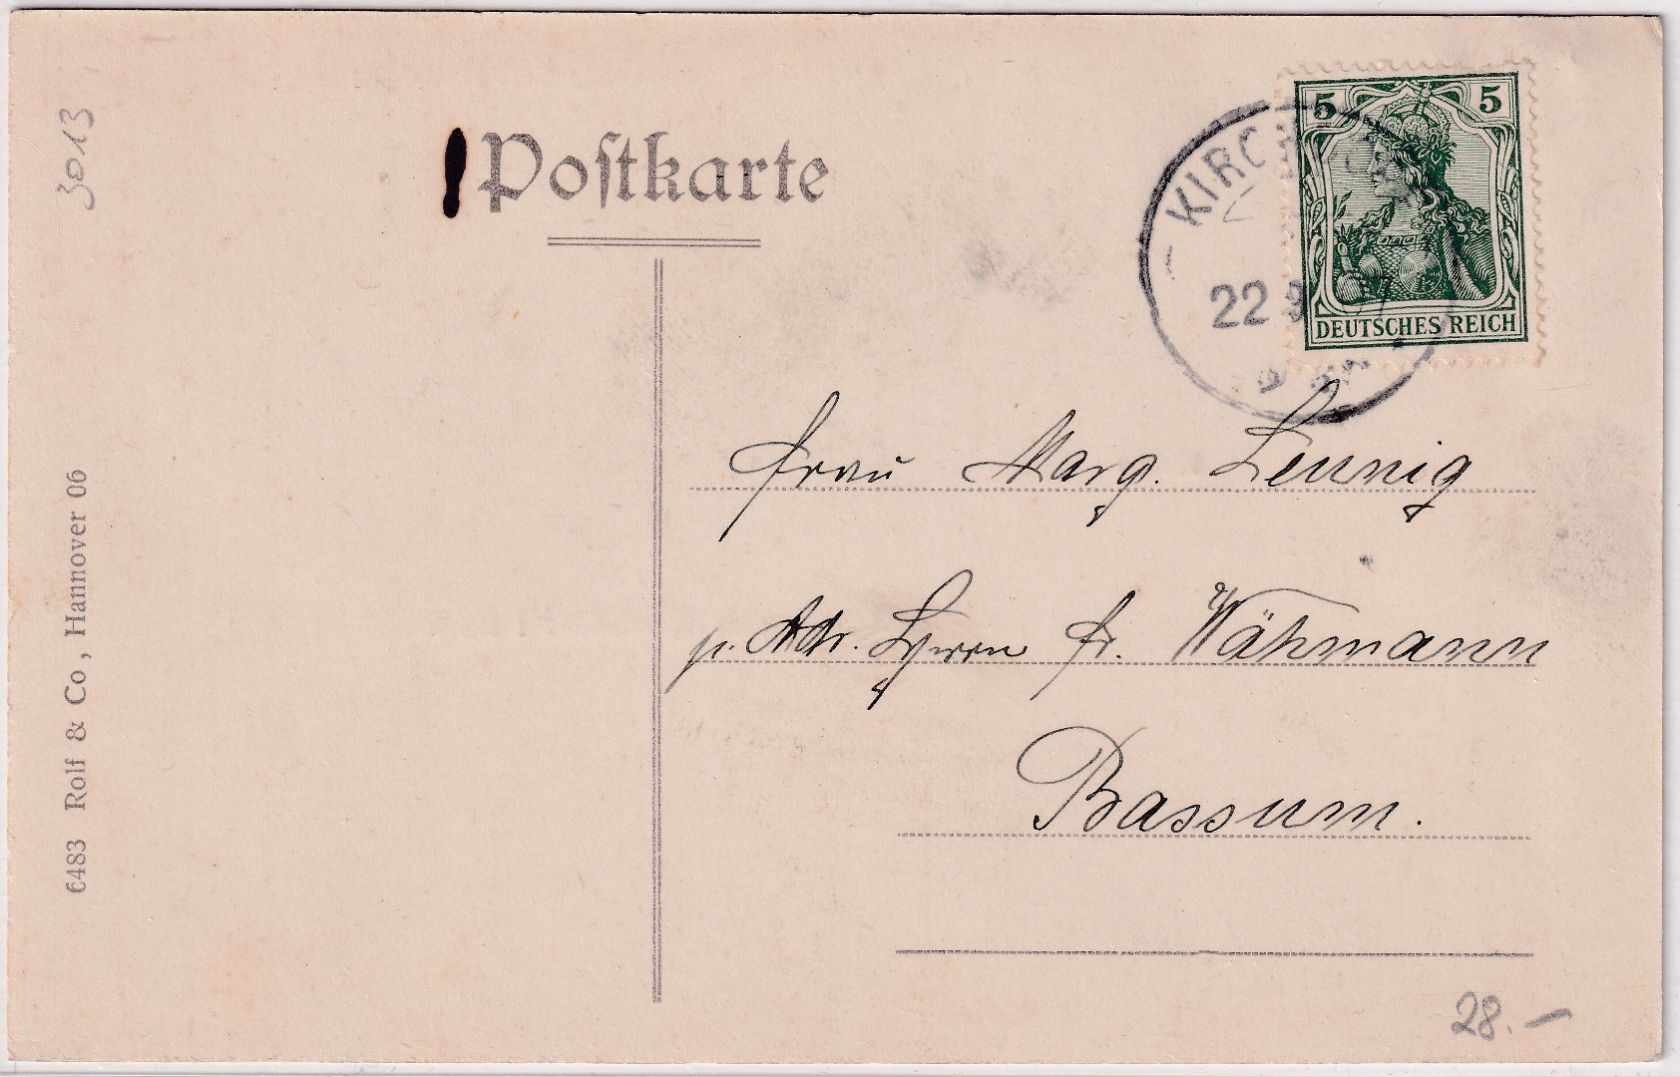 3013
Postkarte
5 5
KIRCH
22 9 07
DEUTSCHES REICH
Frau Marg. Leunig
p. Adr. Herrn Fr. Wähmann
Bassum.
6483 Rolf & Co, Hannover 06
28.–